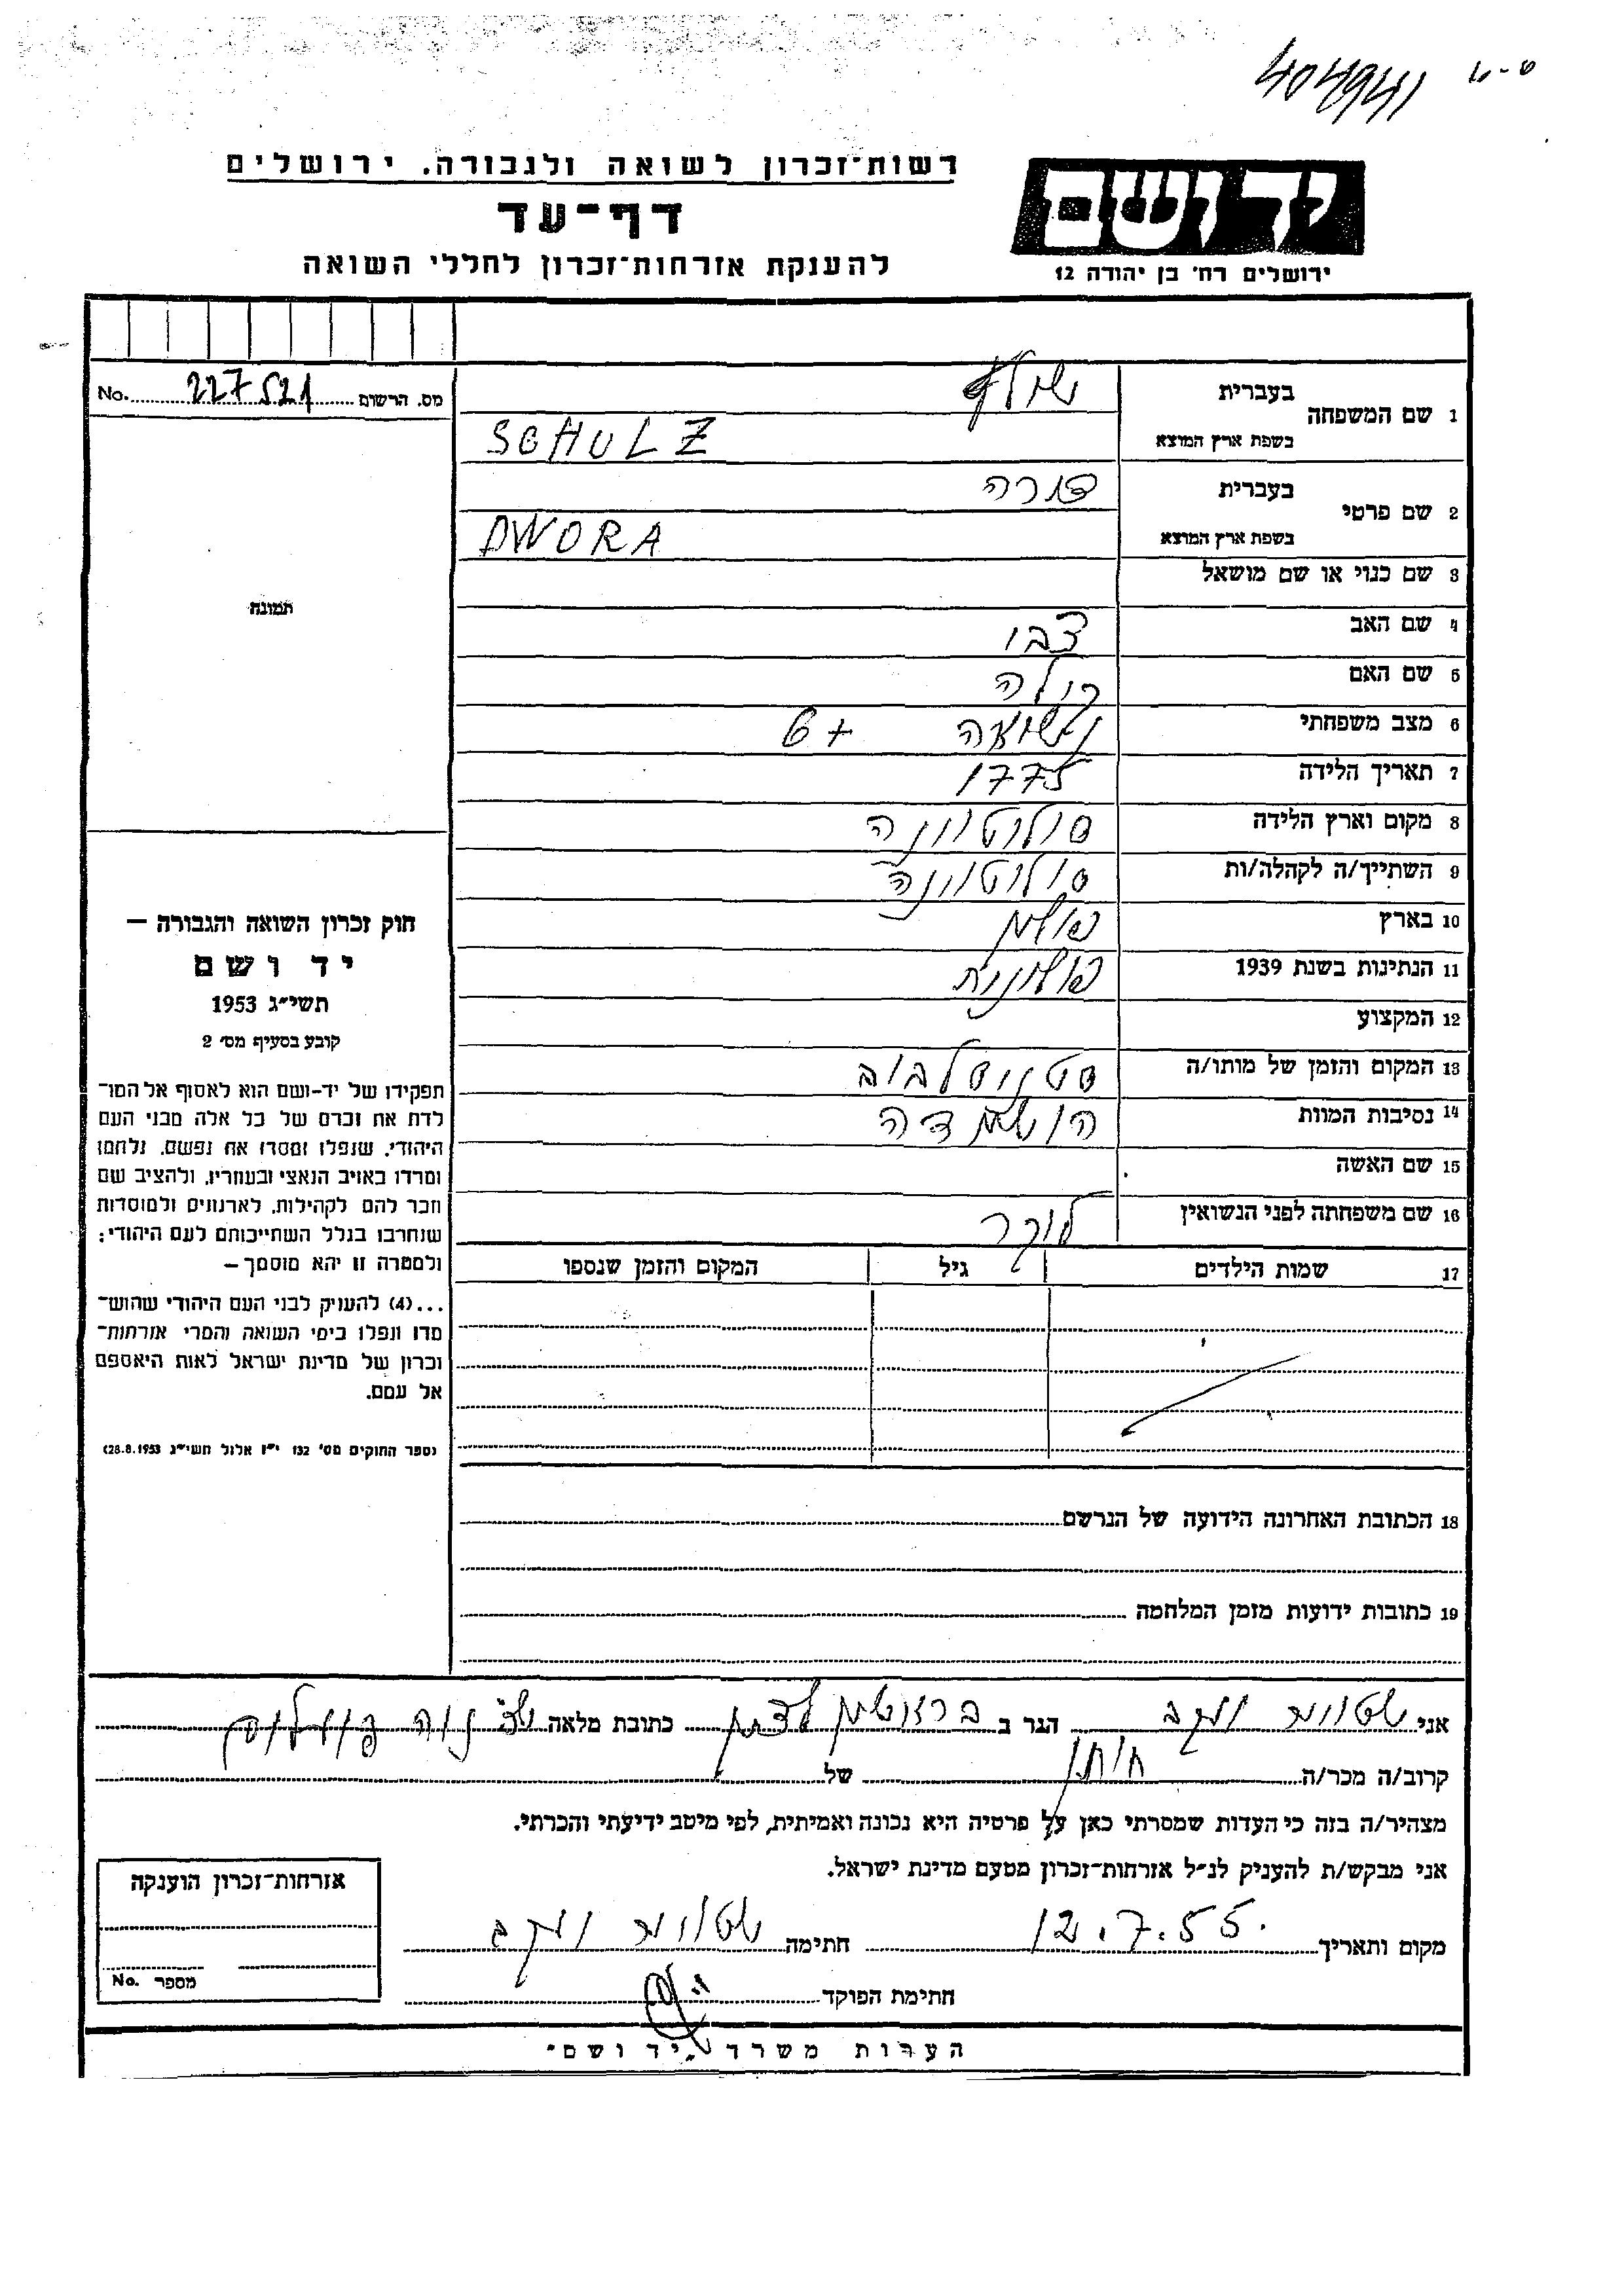 404941 ש-ט
רשות-זכרון לשואה ולגבורה. ירושלים
דף-עד
להענקת אזרחות-זכרון לחללי השואה
יד ושם
ירושלים רח' בן יהודה 12
מס. הרשום 227521 No.
תמונה
חוק זכרון השואה והגבורה –
יד ושם
תשי"ג 1953
קובע בסעיף מס' 2
תפקידו של יד-ושם הוא לאסוף אל המו-
לדת את זכרם של כל אלה מבני העם
היהודי, שנפלו ומסרו את נפשם, נלחמו
ומרדו באויב הנאצי ובעוזריו, ולהציב שם
וזכר להם לקהילות, לארגונים ולמוסדות
שנחרבו בגלל השתייכותם לעם היהודי;
ולמטרה זו יהא מוסמך –
...(4) להעניק לבני העם היהודי שהוש-
מדו ונפלו בימי השואה והמרי אזרחות-
זכרון של מדינת ישראל לאות היאספם
אל עמם.
(ספר החוקים מס' 132 י"ז אלול תשי"ג 28.8.1953)
1 שם המשפחה בעברית שולץ
בשפת ארץ המוצא SCHULZ
2 שם פרטי בעברית דורה
בשפת ארץ המוצא DWORA
3 שם כנוי או שם מושאל
4 שם האב צבי
5 שם האם
6 מצב משפחתי נשואה + 6
7 תאריך הלידה 1775
8 מקום וארץ הלידה סולוטווינה
9 השתייך/ה לקהלה/ות סולוטווינה
10 בארץ פולין
11 הנתינות בשנת 1939 פולונית
12 המקצוע
13 המקום והזמן של מותו/ה סטניסלבוב
14 נסיבות המוות הושמדה
15 שם האשה
16 שם משפחתה לפני הנשואין
17 שמות הילדים גיל המקום והזמן שנספו
18 הכתובת האחרונה הידועה של הנרשם
19 כתובות ידועות מזמן המלחמה
אני יעקב הגר ב כתובת מלאה
קרוב/ה מכר/ה חתן של
מצהיר/ה בזה כי העדות שמסרתי כאן על פרטיה היא נכונה ואמיתית, לפי מיטב ידיעתי והכרתי.
אני מבקש/ת להעניק לנ"ל אזרחות-זכרון מטעם מדינת ישראל.
מקום ותאריך 12.7.55 חתימה יעקב
חתימת הפוקד
אזרחות-זכרון הוענקה
מספר No.
הערות משרד "יד ושם"